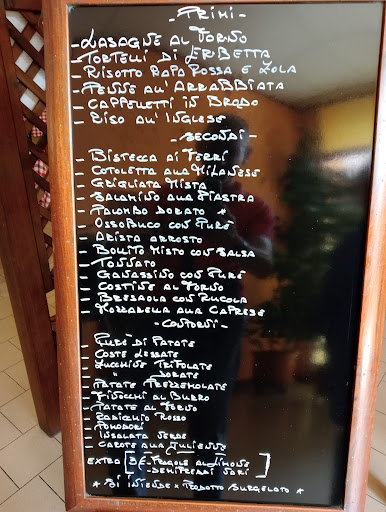 - PRIMI -
- LASAGNE AL FORNO
- TORTELLI DI ERBETTA
- RISOTTO RAPA ROSSA E ZOLA
- PENNE ALL'ARRABBIATA
- CAPPELLETTI IN BRODO
- RISO ALL'INGLESE
- SECONDI -
- BISTECCA AI FERRI
- COTOLETTA ALLA MILANESE
- GRIGLIATA MISTA
- SALAMINO ALLA PIASTRA
- PALOMBO DORATO *
- OSSOBUCO CON PURÈ
- ARISTA ARROSTO
- BOLLITO MISTO CON SALSA
- TONNATO
- GUANCIALINO CON PURÈ
- COSTINE AL FORNO
- BRESAOLA CON RUCOLA
- MOZZARELLA ALLA CAPRESE
- CONTORNI -
- PURÈ DI PATATE
- COSTE LESSATE
- ZUCCHINE TRIFOLATE
- " DORATE
- PATATE PREZZEMOLATE
- FINOCCHI AL BURRO
- PATATE AL FORNO
- RADICCHIO ROSSO
- POMODORI
- INSALATA VERDE
- CAROTE ALLA JULIENNE
EXTRA [3€ - FRAGOLE AL LIMONE
- SEMIFREDDI VARI]
* SI INTENDE X PRODOTTO SURGELATO *